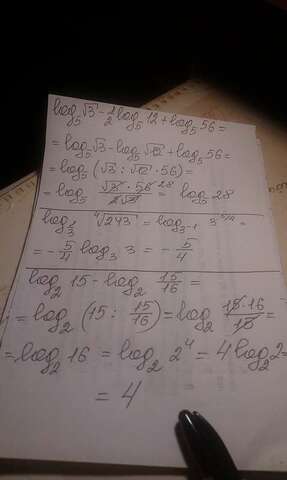 log₅√3 - 1/2 log₅12 + log₅56 =
= log₅√3 - log₅√12 + log₅56 =
= log₅(√3 : √12 · 56) =
= log₅ (√3 · 56 28)/(2√3) = log₅ 28
log_{1/3} ⁴√243 = log_{3⁻¹} 3^{5/4} =
= -5/4 log₃ 3 = -5/4
log₂ 15 - log₂ 15/16 =
= log₂ (15 : 15/16) = log₂ (15·16)/15 =
= log₂ 16 = log₂ 2⁴ = 4 log₂ 2 =
= 4